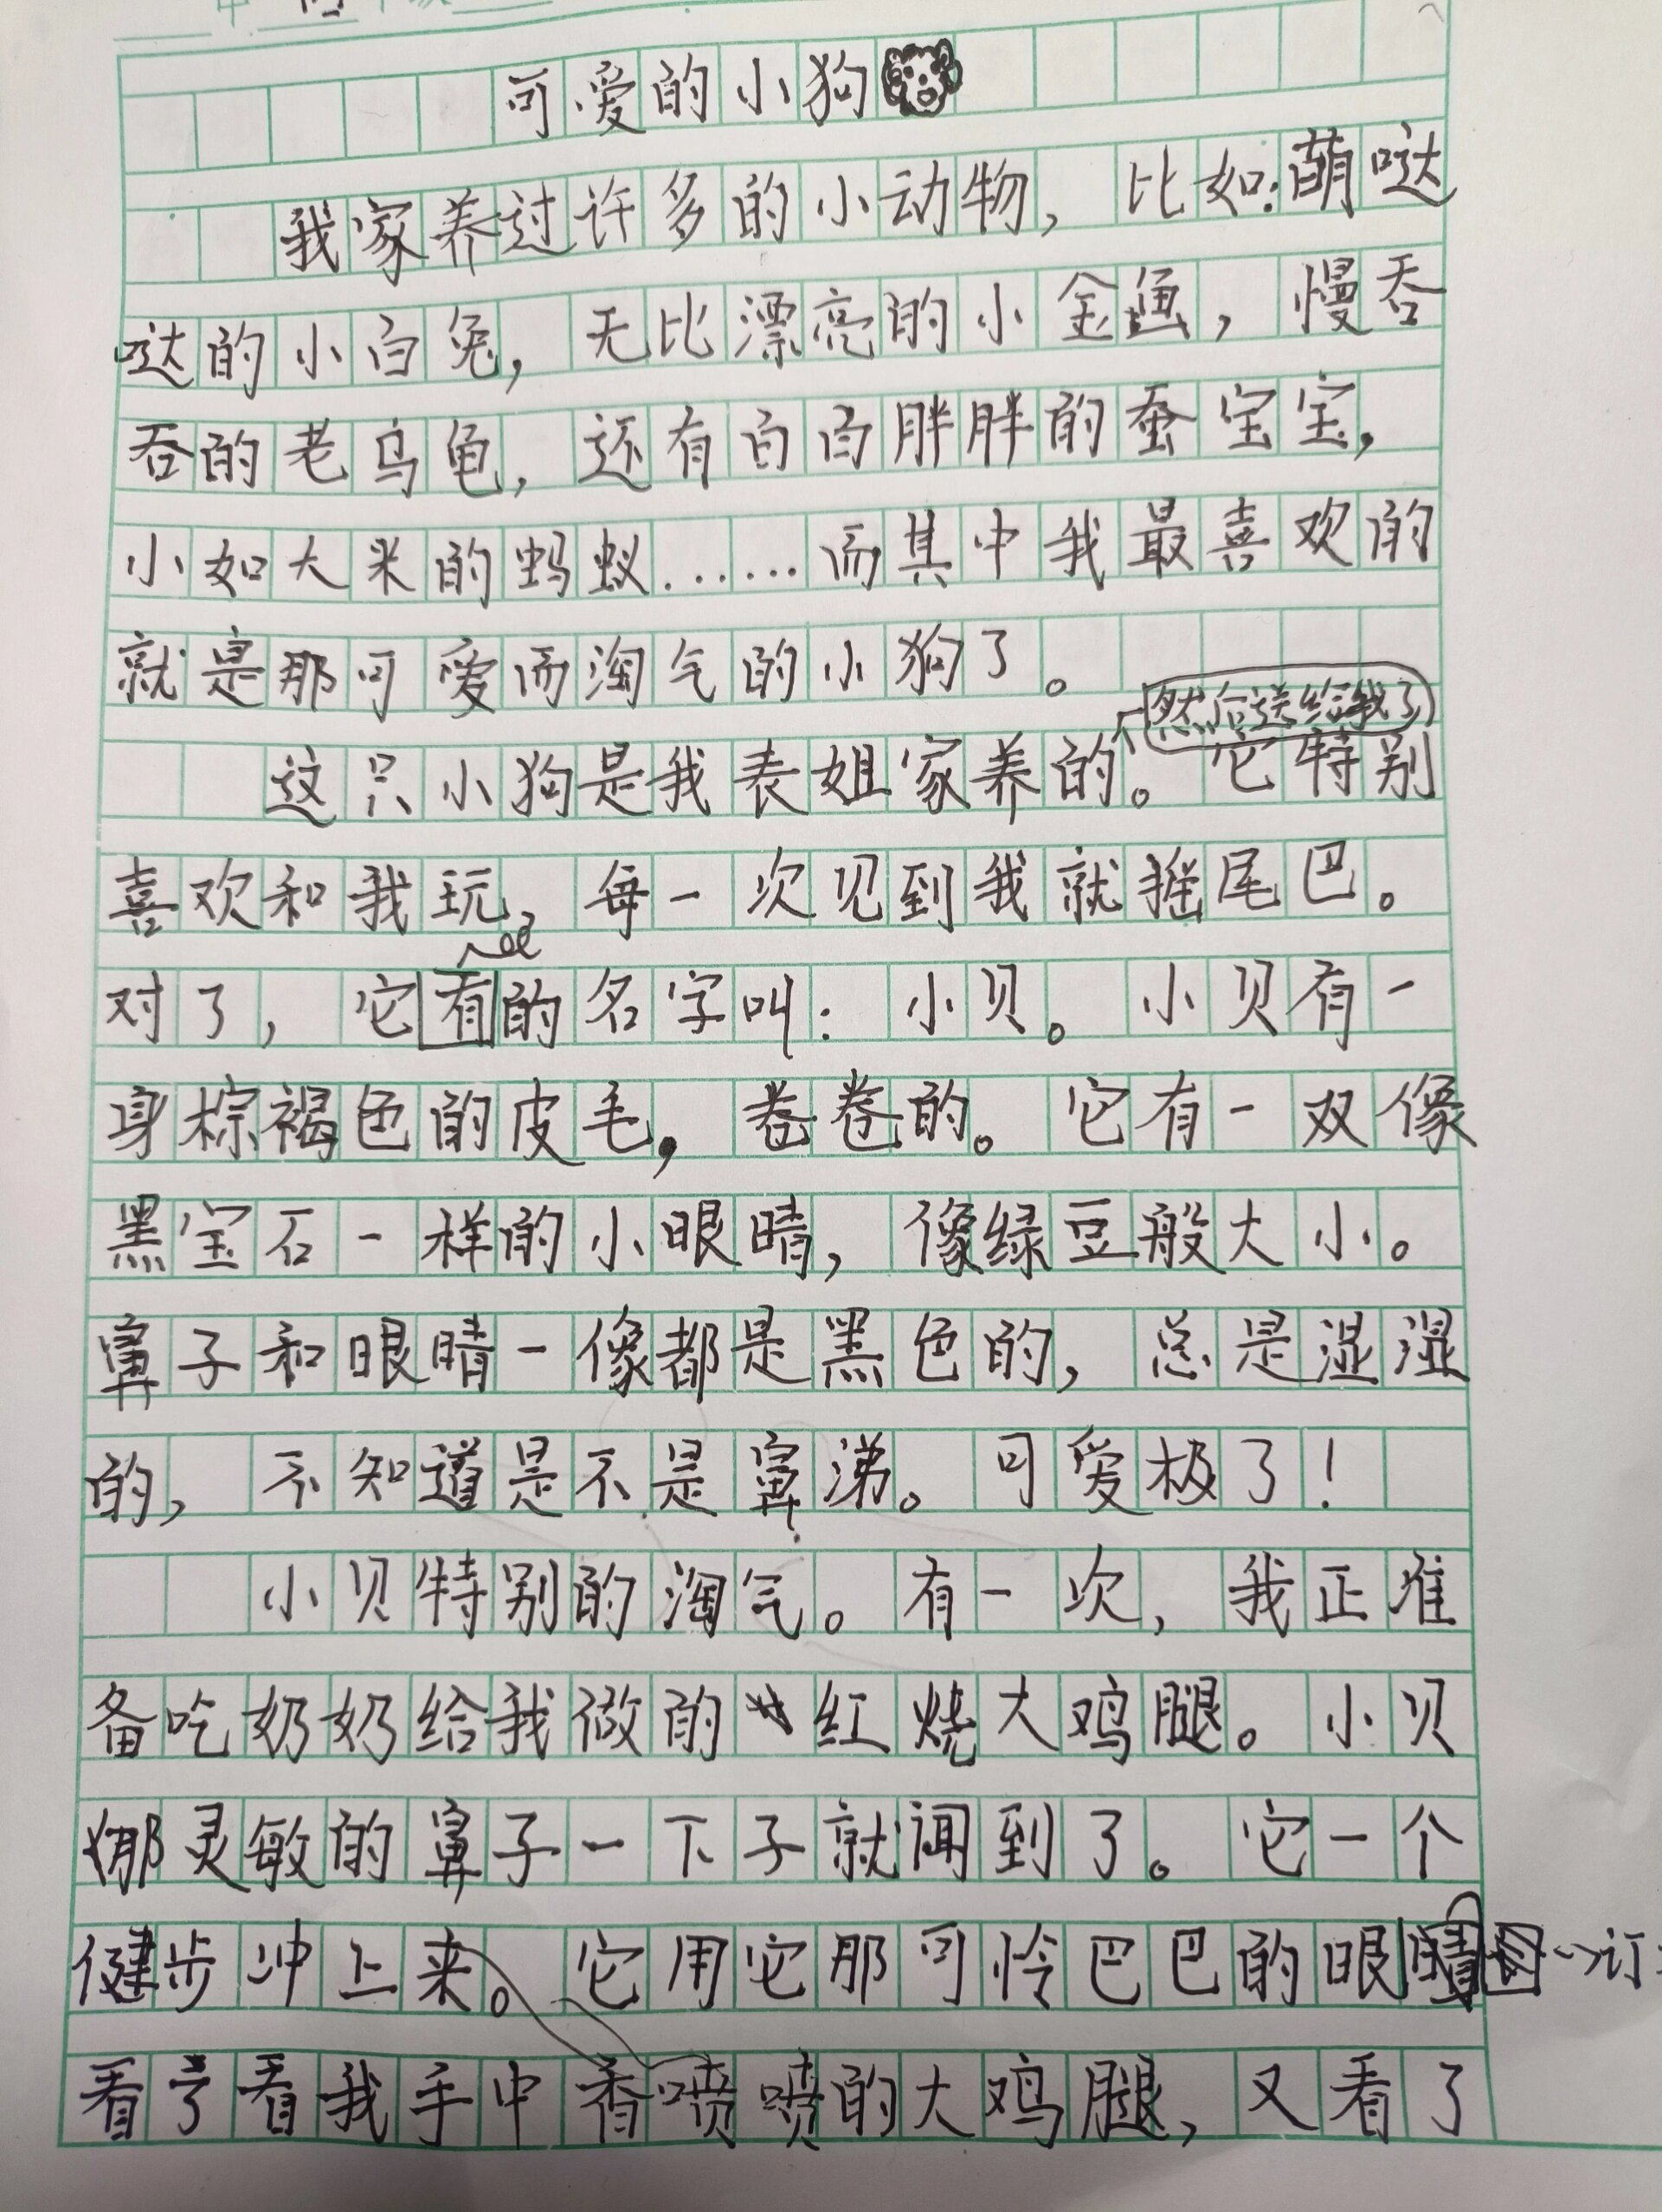 可爱的小狗
我家养过许多的小动物，比如：萌哒
哒的小白兔，无比漂亮的小金鱼，慢吞
吞的老乌龟，还有白白胖胖的蚕宝宝，
小如大米的蚂蚁……而其中我最喜欢的
就是那可爱而淘气的小狗了。
然后送给我了
这只小狗是我表姐家养的。它特别
喜欢和我玩，每一次见到我就摇尾巴。
对了，它有的名字叫：小贝。小贝有一
身棕褐色的皮毛，卷卷的。它有一双像
黑宝石一样的小眼睛，像绿豆般大小。
鼻子和眼睛一像都是黑色的，总是湿湿
的，不知道是不是鼻涕。可爱极了！
小贝特别的淘气。有一次，我正准
备吃奶奶给我做的红烧大鸡腿。小贝
那灵敏的鼻子一下子就闻到了。它一个
健步冲上来。它用它那可怜巴巴的眼睛
订
看了看我手中香喷喷的大鸡腿，又看了